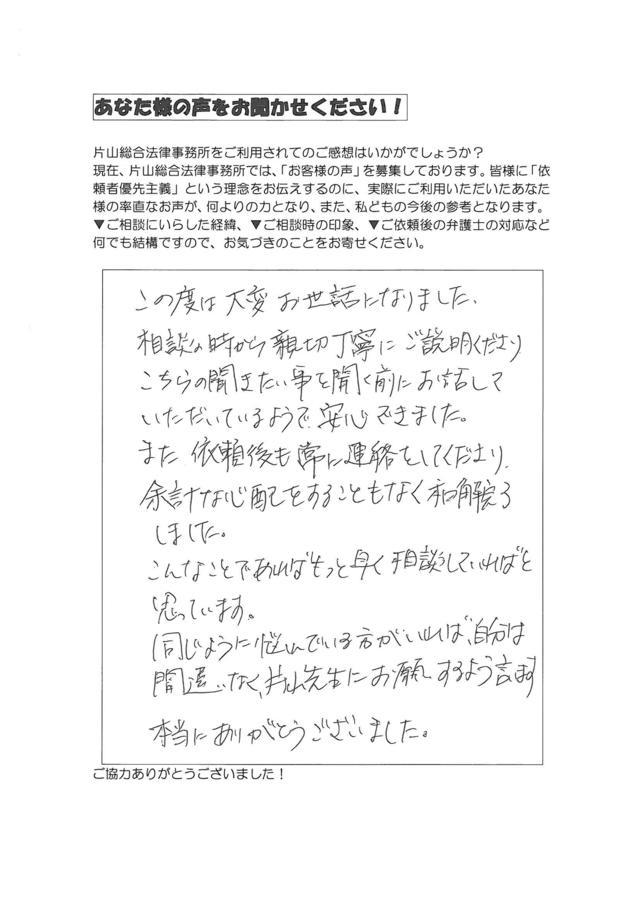 あなた様の声をお聞かせください！
片山総合法律事務所をご利用されてのご感想はいかがでしょうか？
現在、片山総合法律事務所では、「お客様の声」を募集しております。皆様に「依
頼者優先主義」という理念をお伝えするのに、実際にご利用いただいたあなた
様の率直なお声が、何よりの力となり、また、私どもの今後の参考となります。
▼ご相談にいらした経緯、▼ご相談時の印象、▼ご依頼後の弁護士の対応など
何でも結構ですので、お気づきのことをお寄せください。
この度は大変お世話になりました、
相談の時から親切丁寧にご説明くださり
こちらの聞きたい事を聞く前にお話して
いただいているようで安心できました。
また依頼後も常に連絡をしてくださり、
余計な心配をすることもなく和解
しました。
こんなことであればもっと早く相談していればと
思っています。
同じように悩んでいる方がいれば、自分は
間違いなく、片山先生にお願いするよう言います
本当にありがとうございました。
ご協力ありがとうございました！